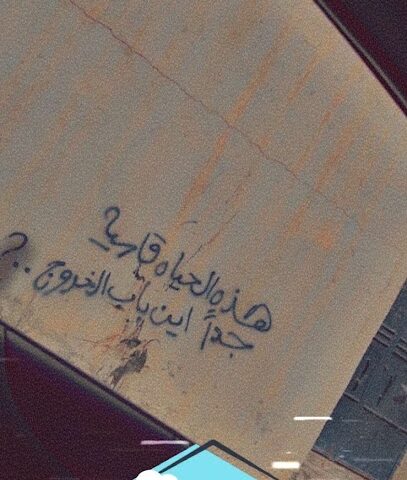 هذه الحياه قاسية
جداً اين باب الخروج ..؟